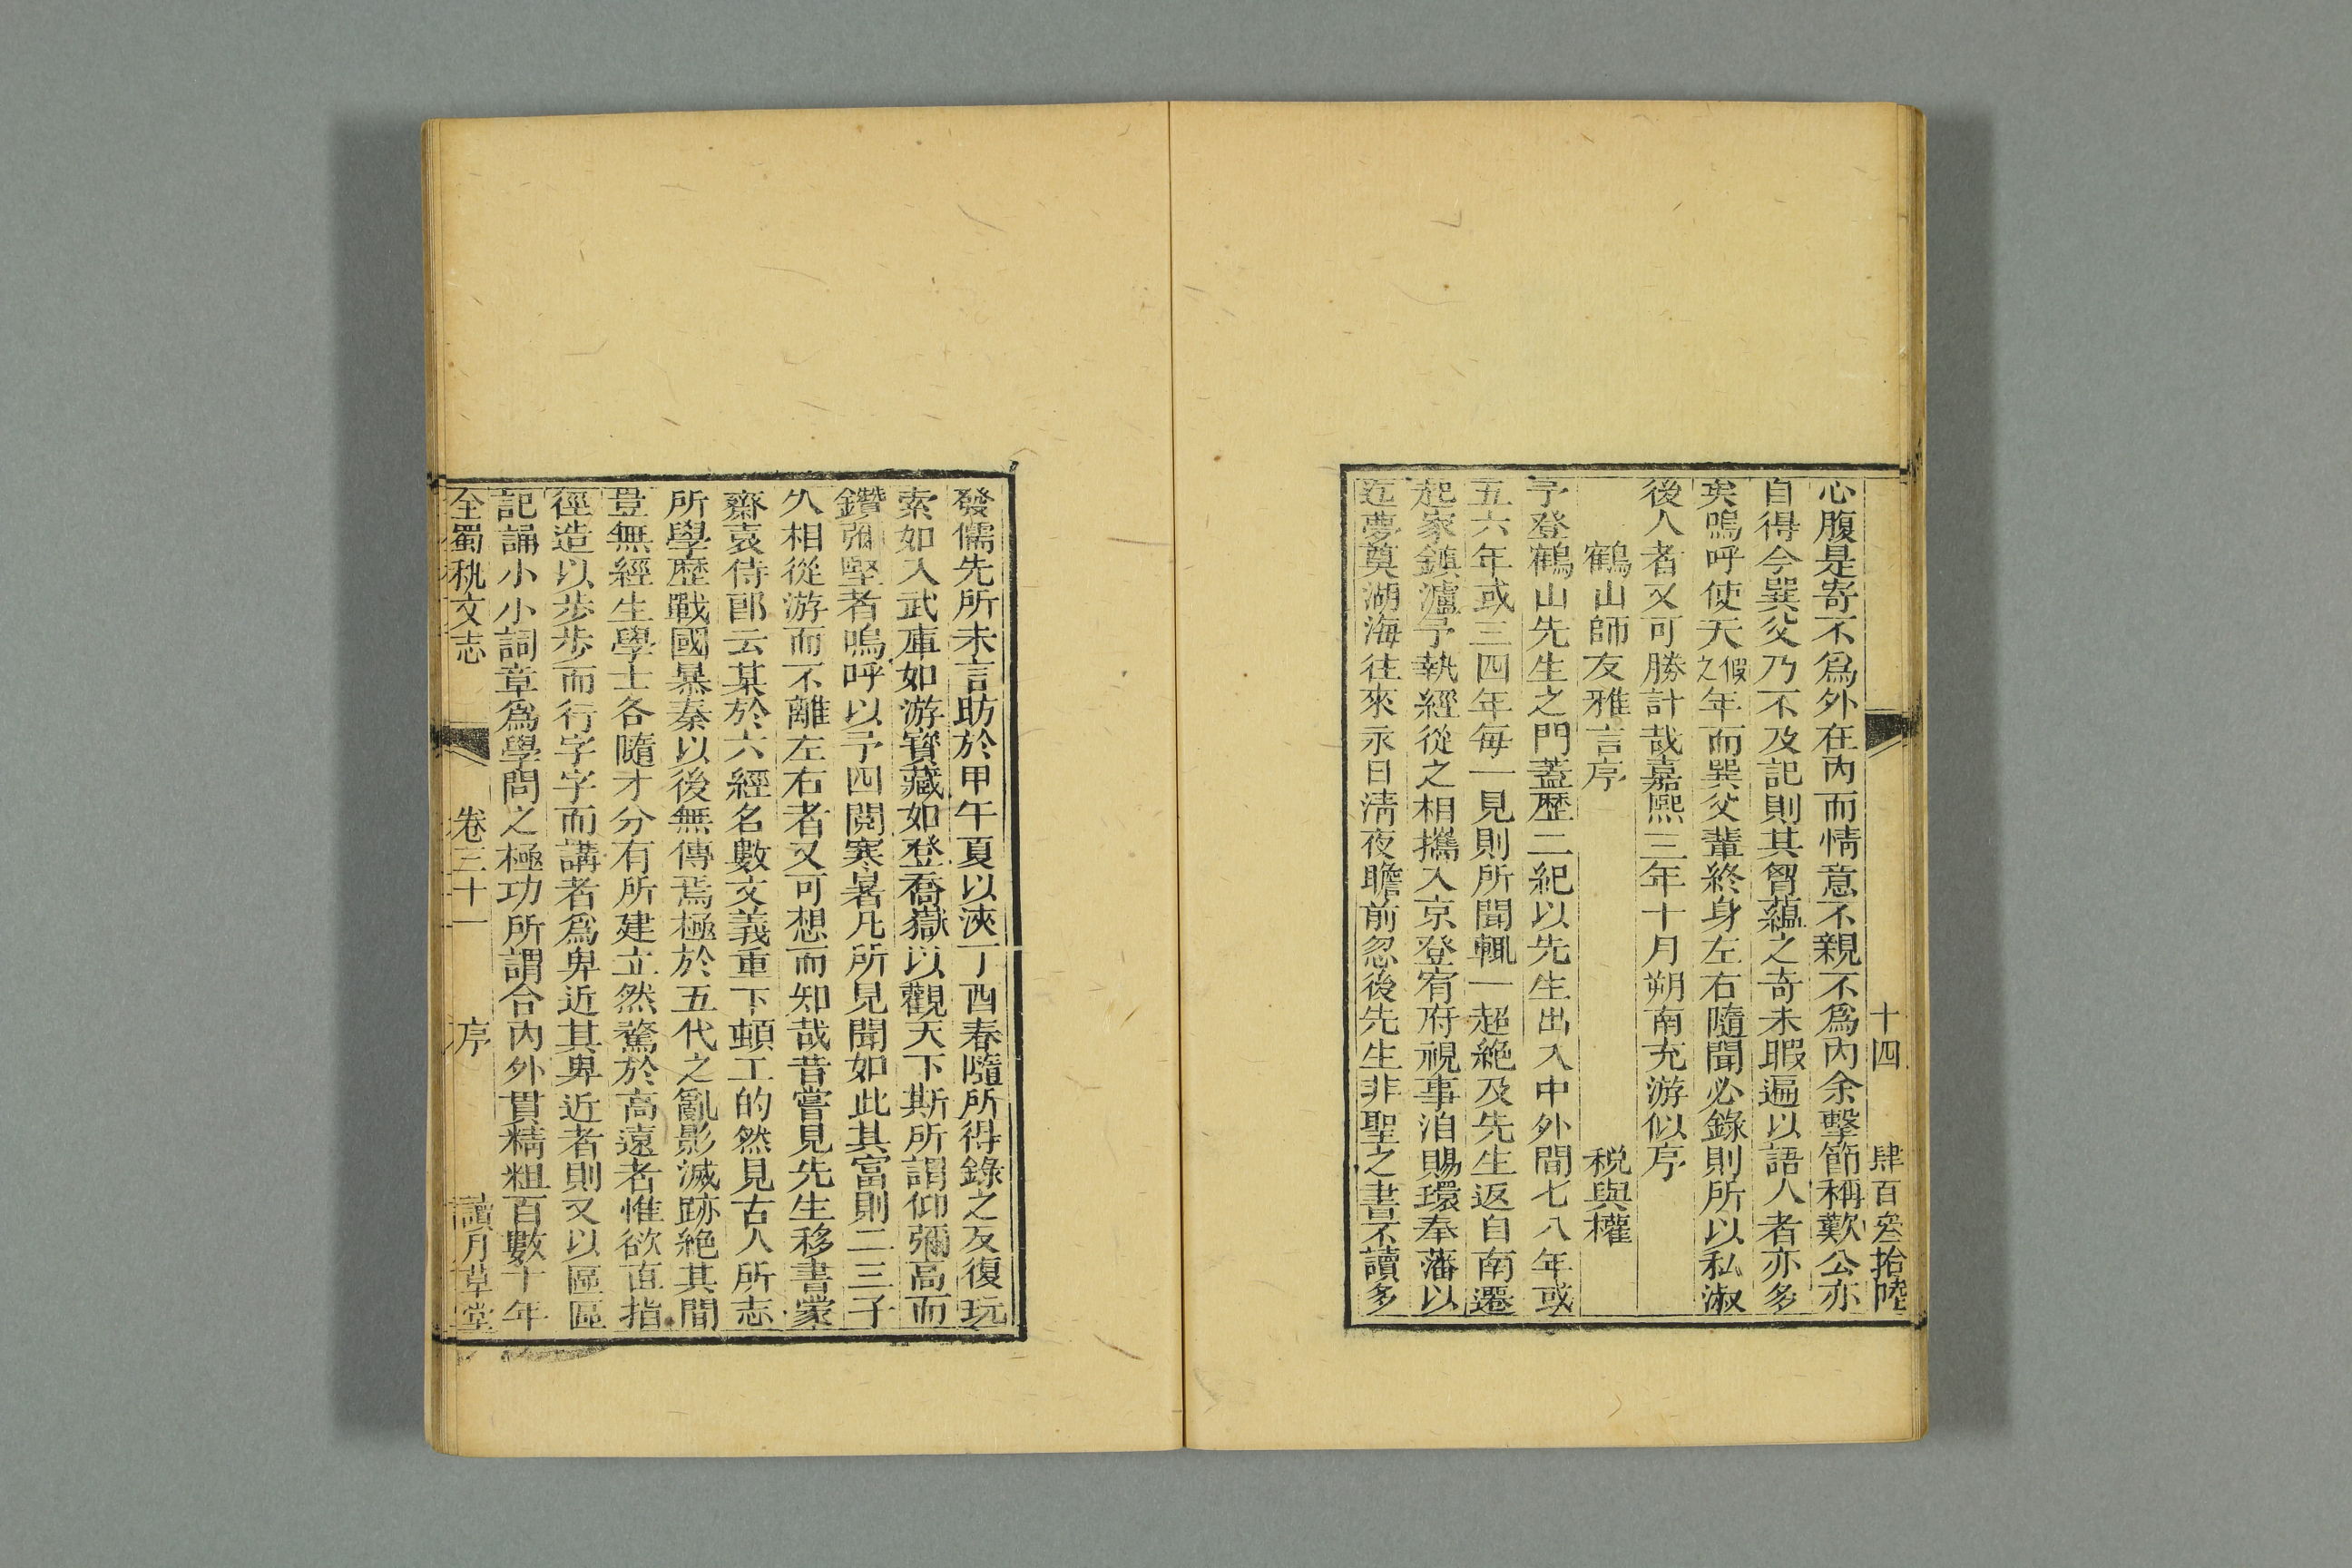 十四 肆百叁拾陸
心腹是寄不爲外在內而情意不親不爲內余擊節稱歎公亦
自得今巽父乃不及記則其胷蘊之奇未暇遍以語人者亦多
矣嗚呼使天假之年而巽父輩終身左右隨聞必錄則所以私淑
後人者又可勝計哉嘉熙三年十月朔南充游似序
鶴山師友雅言序 稅與權
予登鶴山先生之門蓋歷二紀以先生出入中外間七八年或
五六年或三四年每一見則所聞輒一超絶及先生返自南遷
起家鎮瀘予執經從之相攜入京登宥府視事洎賜環奉藩以
迄夢奠湖海往來永日淸夜瞻前忽後先生非聖之書不讀多
發儒先所未言助於甲午夏以浹丁酉春隨所得錄之反復玩
索如入武庫如游寶藏如登喬嶽以觀天下斯所謂仰彌高而
鑽彌堅者嗚呼以予四閱寒暑凡所見聞如此其富則二三子
久相從游而不離左右者又可想而知哉昔嘗見先生移書蒙
齋袁侍郎云某於六經名數文義重下頓工的然見古人所志
所學歷戰國暴秦以後無傳焉極於五代之亂影滅跡絶其間
豈無經生學士各隨才分有所建立然騖於高遠者惟欲直指
徑造以步步而行字字而講者爲卑近其卑近者則又以區區
記誦小小詞章爲學問之極功所謂合內外貫精粗百數十年
全蜀秇文志 卷三十一 序 讀月草堂